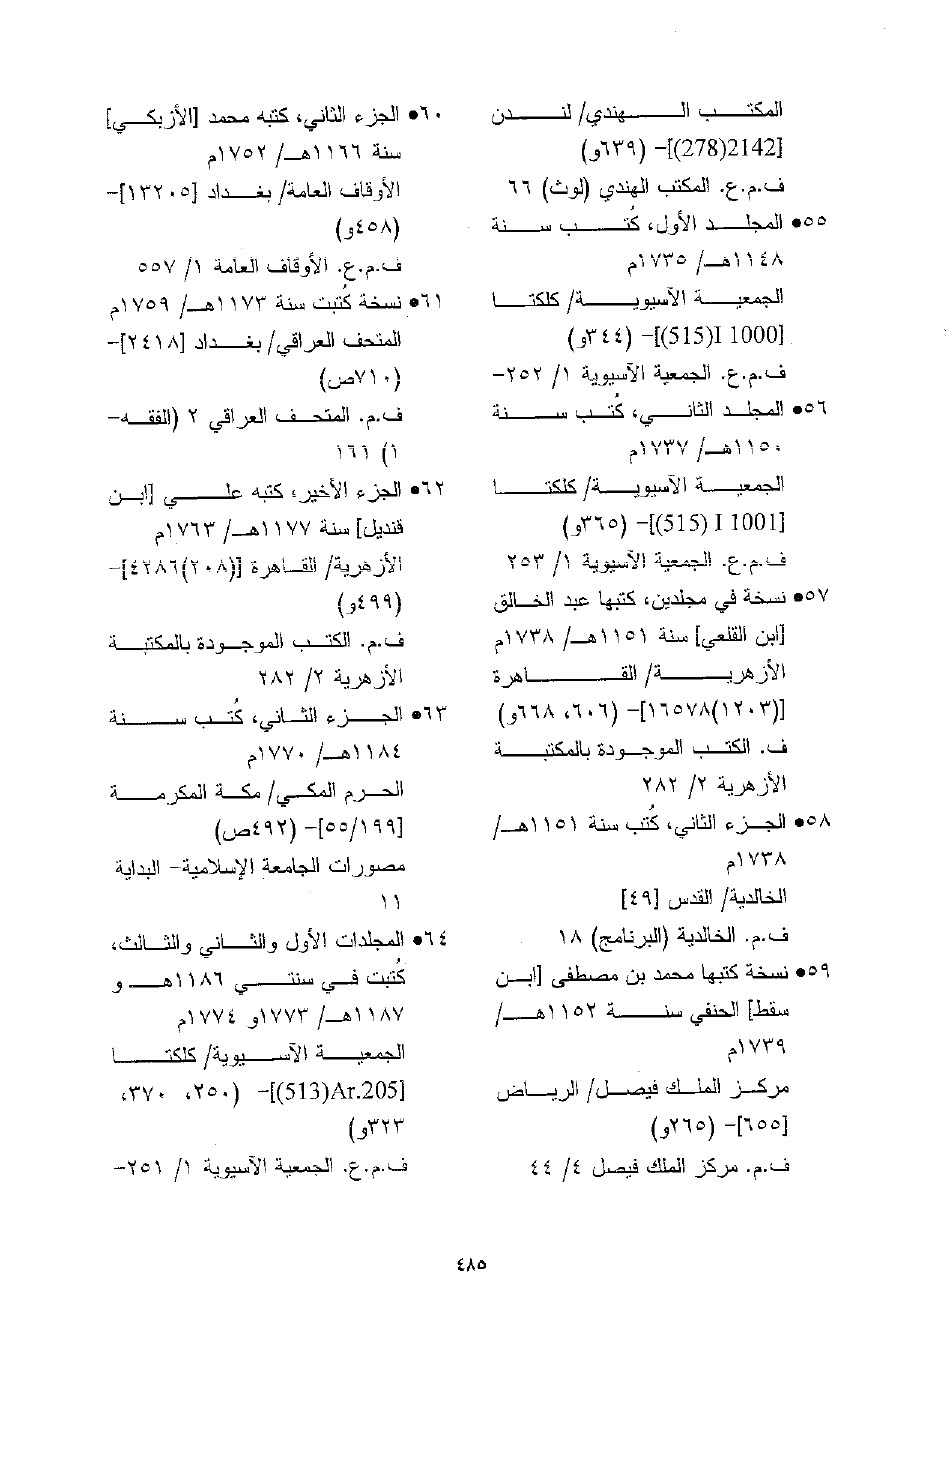 المكتب الهندي/ لندن
[2142(278)]- (٦٣٩و)
ف.م.ع. المكتب الهندي (لوث) ٦٦
٥٥• المجلد الأول، كُتب سنة
١١٤٨هـ/ ١٧٣٥م
الجمعية الآسيوية/ كلكتا
[I 1000(515)]- (٣٤٤و)
ف.م.ع. الجمعية الآسيوية ١/ ٢٥٢-
٥٦• المجلد الثاني، كُتب سنة
١١٥٠هـ/ ١٧٣٧م
الجمعية الآسيوية/ كلكتا
[I 1001 (515)]- (٣٦٥و)
ف.م.ع. الجمعية الآسيوية ١/ ٢٥٣
٥٧• نسخة في مجلدين، كتبها عبد الخالق
[ابن القلعي] سنة ١١٥١هـ/ ١٧٣٨م
الأزهرية/ القاهرة
[(١٢٠٣)١٦٥٧٨]- (٦٠٦، ٦٦٨و)
ف. الكتب الموجودة بالمكتبة
الأزهرية ٢/ ٢٨٢
٥٨• الجزء الثاني، كُتب سنة ١١٥١هـ/
١٧٣٨م
الخالدية/ القدس [٤٩]
ف.م. الخالدية (البرنامج) ١٨
٥٩• نسخة كتبها محمد بن مصطفى [ابن
سقط] الحنفي سنة ١١٥٢هـ/
١٧٣٩م
مركز الملك فيصل/ الرياض
[٦٥٥]- (٢٦٥و)
ف.م. مركز الملك فيصل ٤/ ٤٤
٦٠• الجزء الثاني، كتبه محمد [الأزبكي]
سنة ١١٦٦هـ/ ١٧٥٢م
الأوقاف العامة/ بغداد [١٣٢٠٥]-
(٤٥٨و)
ف.م.ع. الأوقاف العامة ١/ ٥٥٧
٦١• نسخة كُتبت سنة ١١٧٣هـ/ ١٧٥٩م
المتحف العراقي/ بغداد [٢٤١٨]-
(٧١٠ص)
ف.م. المتحف العراقي ٢ (الفقه-
١) ١٦١
٦٢• الجزء الأخير، كتبه علي [ابن
قنديل] سنة ١١٧٧هـ/ ١٧٦٣م
الأزهرية/ القاهرة [(٢٠٨)٤٢٨٦]-
(٤٩٩و)
ف.م. الكتب الموجودة بالمكتبة
الأزهرية ٢/ ٢٨٢
٦٣• الجزء الثاني، كُتب سنة
١١٨٤هـ/ ١٧٧٠م
الحرم المكي/ مكة المكرمة
[٥٥/١٩٩]- (٤٩٢ص)
مصورات الجامعة الإسلامية- البداية
١١
٦٤• المجلدات الأول والثاني والثالث،
كُتبت في سنتي ١١٨٦هـ و
١١٨٧هـ/ ١٧٧٣و ١٧٧٤م
الجمعية الآسيوية/ كلكتا
[Ar.205(513)]- (٢٥٠، ٣٧٠،
٣٢٣و)
ف.م.ع. الجمعية الآسيوية ١/ ٢٥١-
٤٨٥